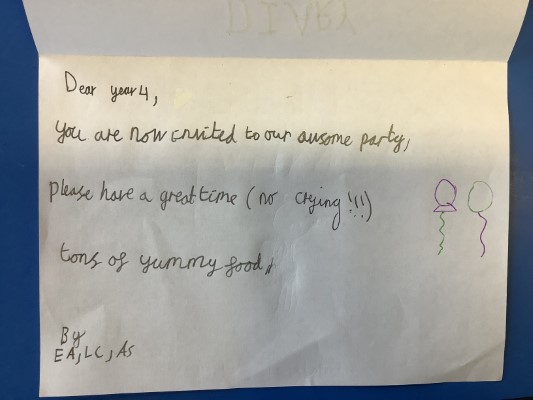 DIARY
Dear year 4,
you are now invited to our ausome party,
please have a great time (no crying!!!)
tons of yummy food,
By
EA, LC, AS